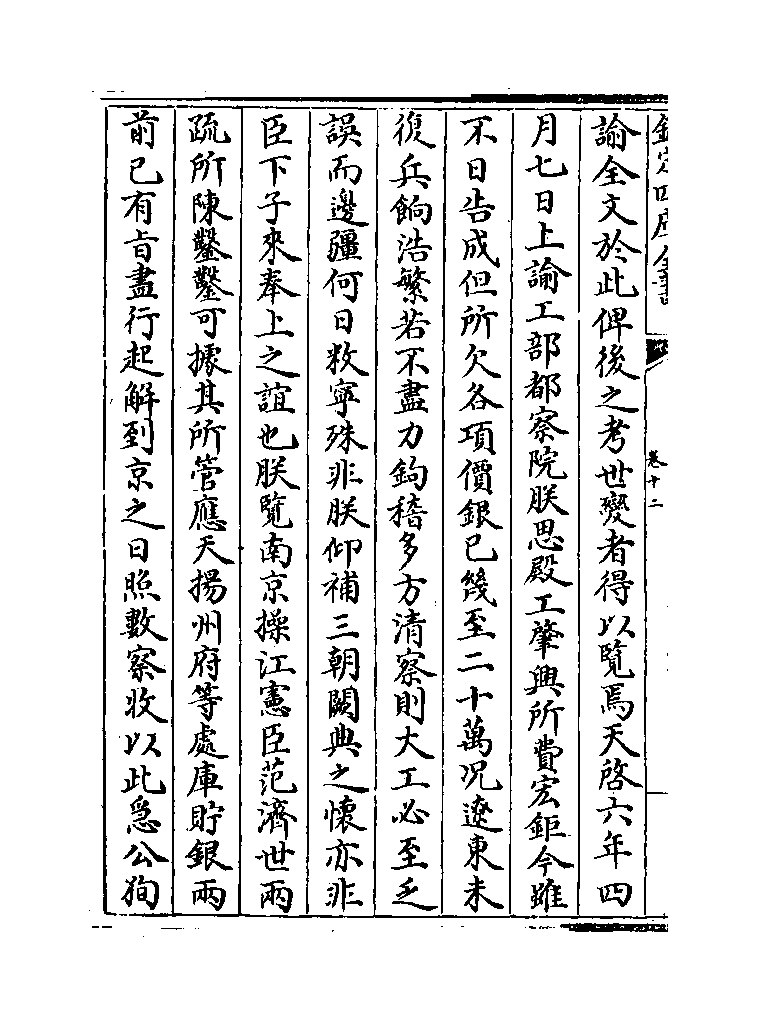 欽定四庫全書
卷十二
諭全文於此俾後之考世變者得以覽焉天啓六年四
月七日上諭工部都察院朕思殿工肇興所費宏鉅今雖
不日告成但所欠各項價銀已幾至二十萬况遼東未
復兵餉浩繁若不盡力鉤稽多方清察則大工必至乏
誤而邊疆何日敉寧殊非朕仰補三朝闕典之懷亦非
臣下子來奉上之誼也朕覽南京操江憲臣范濟世兩
疏所陳鑿鑿可據其所管應天揚州府等處庫貯銀兩
前已有旨盡行起解到京之日照數察收以此急公狥